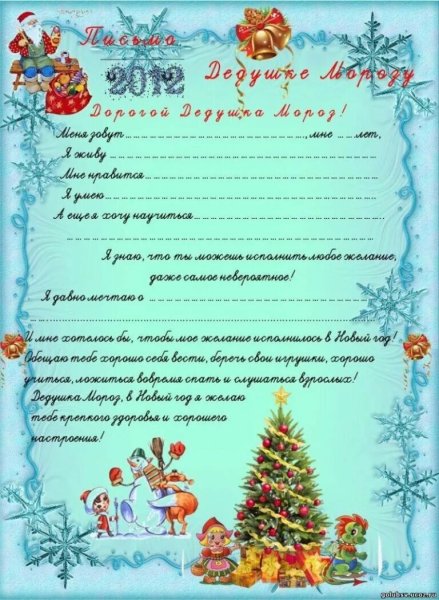 Письмо
2012 Дедушке Морозу
Дорогой Дедушка Мороз!
Меня зовут..............................................., мне ... ...лет,
Я живу ............................................................
Мне нравится....................................................
Я умею..............................................................
А еще я хочу научиться............................................
..............................................................................
Я знаю, что ты можешь исполнить любое желание,
даже самое невероятное!
Я давно мечтаю о ..................................................
..............................................................................
И мне хотелось бы, чтобы мое желание исполнилось в Новый год!
Обещаю тебе хорошо себя вести, беречь свои игрушки, хорошо
учиться, ложиться вовремя спать и слушаться взрослых!
Дедушка Мороз, в Новый год я желаю
тебе крепкого здоровья и хорошего
настроения!
golubsv.ucoz.ru